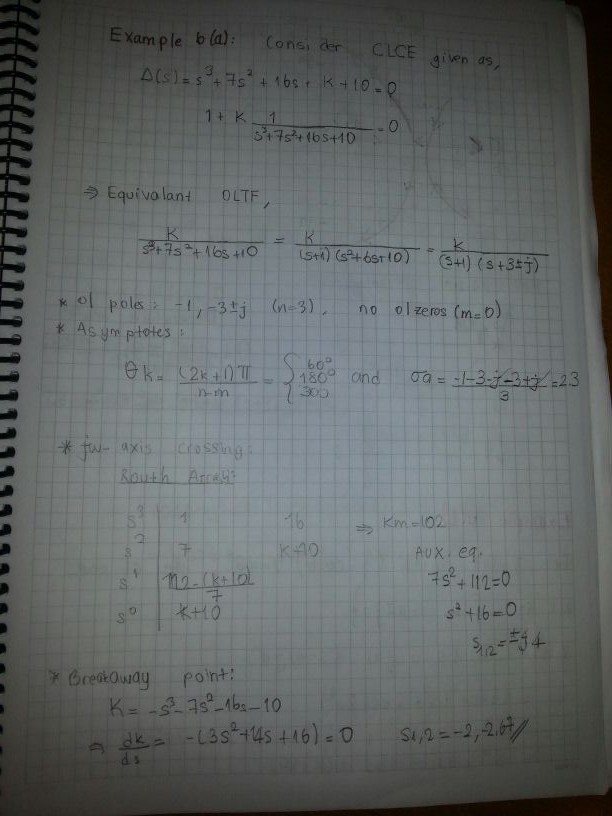 Example b(a): Consider CLCE given as,
Δ(s) = s³+7s²+16s+K+10=0
1+K 1/(s³+7s²+16s+10) = 0
⇒ Equivalant OLTF,
K/(s³+7s²+16s+10) = K/((s+1)(s²+6s+10)) = K/((s+1)(s+3±j))
* Ol poles: -1, -3±j (n=3), no ol zeros (m=0)
* Asymptotes:
θk = (2k+1)π/(n-m) = { 60° 180° 300 and σa = (-1-3-j-3+j)/3 = 23
* jw-axis crossing:
Routh Array:
s³ | 1 16 ⇒ Km=102
s² | 7 K+10 Aux. eq.
s¹ | (112-(K+10))/7 7s²+112=0
s⁰ | K+10 s²+16=0
s1,2=±j4
* Breakaway point:
K = -s³-7s²-16s-10
⇒ dk/ds = -(3s²+14s+16)=0 S1,2=-2,-2.67//